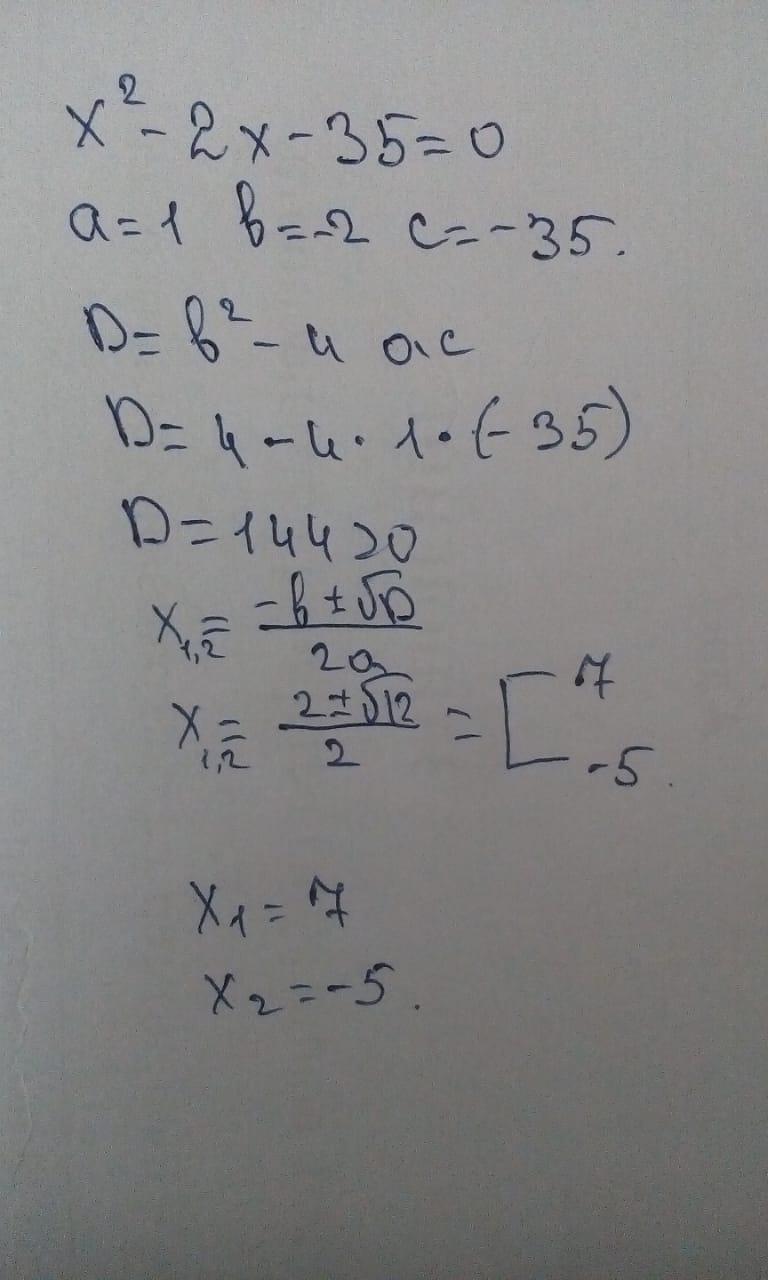 x² - 2x - 35 = 0
a = 1 b = -2 c = -35.
D = b² - 4 ac
D = 4 - 4 · 1 · (-35)
D = 144 > 0
x₁,₂ = (-b ± √D) / 2a
x₁,₂ = (2 ± √12) / 2 = [ 7 -5.
x₁ = 7
x₂ = -5.